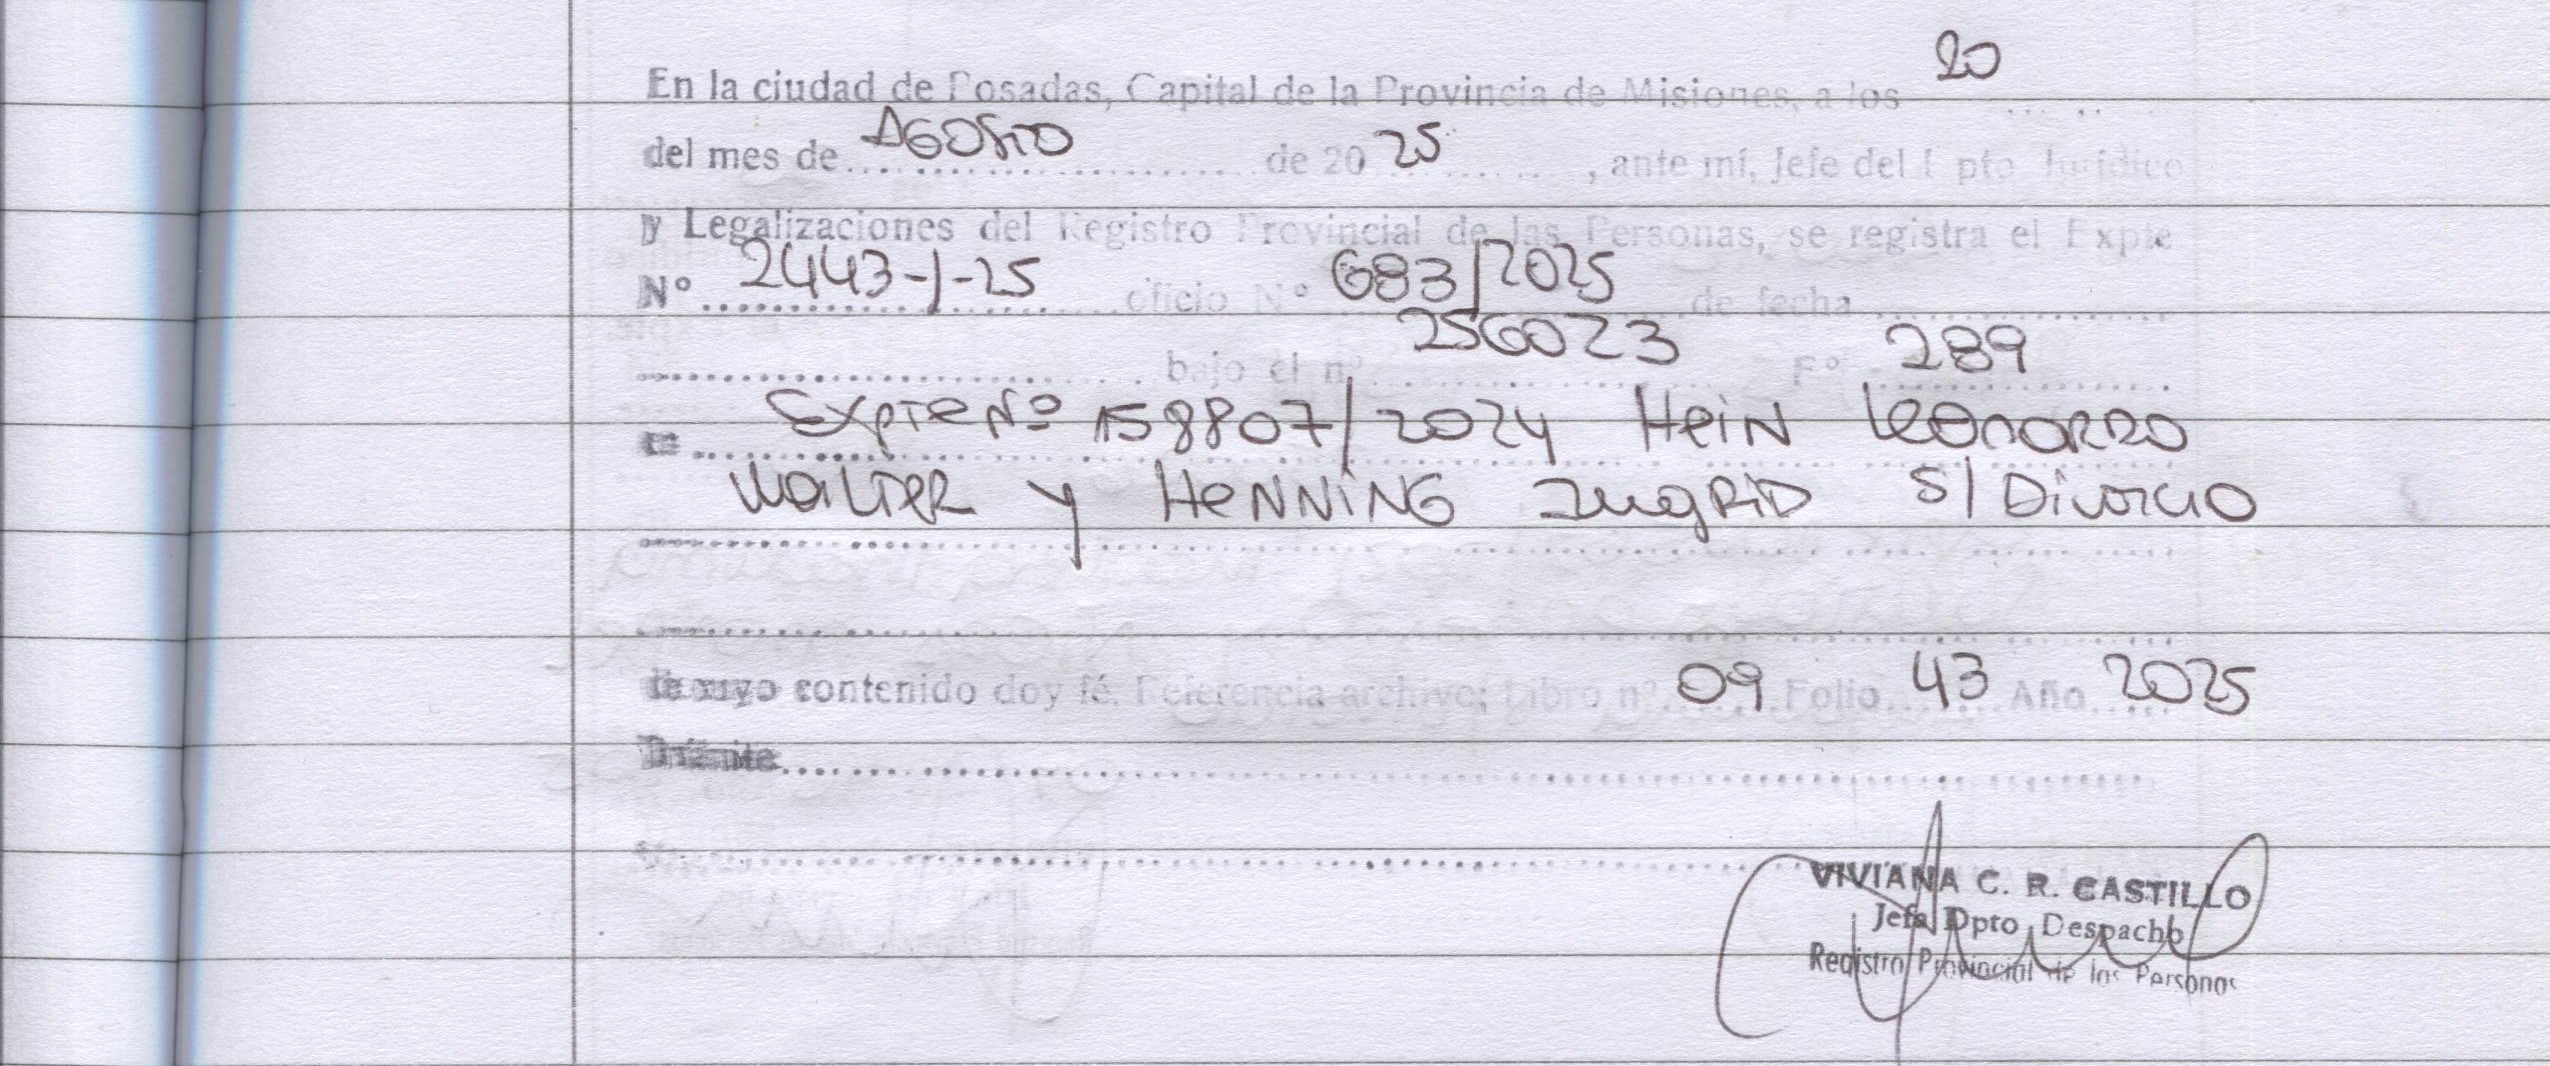 En la ciudad de Posadas, Capital de la Provincia de Misiones, a los 20
del mes de AGOSTO de 20 25, ante mí, Jefe del Dpto Jurídico
y Legalizaciones del Registro Provincial de las Personas, se registra el Expte
Nº 2443-J-25 oficio Nº 683/2025 de fecha
bajo el nº 256023 Fº 289
Expte Nº 158807/2024 Hein Leonardo
Walter y HENNING Ingrid S/ Divorcio
de cuyo contenido doy fé. Referencia archivo; Libro nº 09 Folio 43 Año 2025
Trámite
VIVIANA C. R. CASTILLO
Jefa Dpto Despacho
Registro Provincial de las Personas